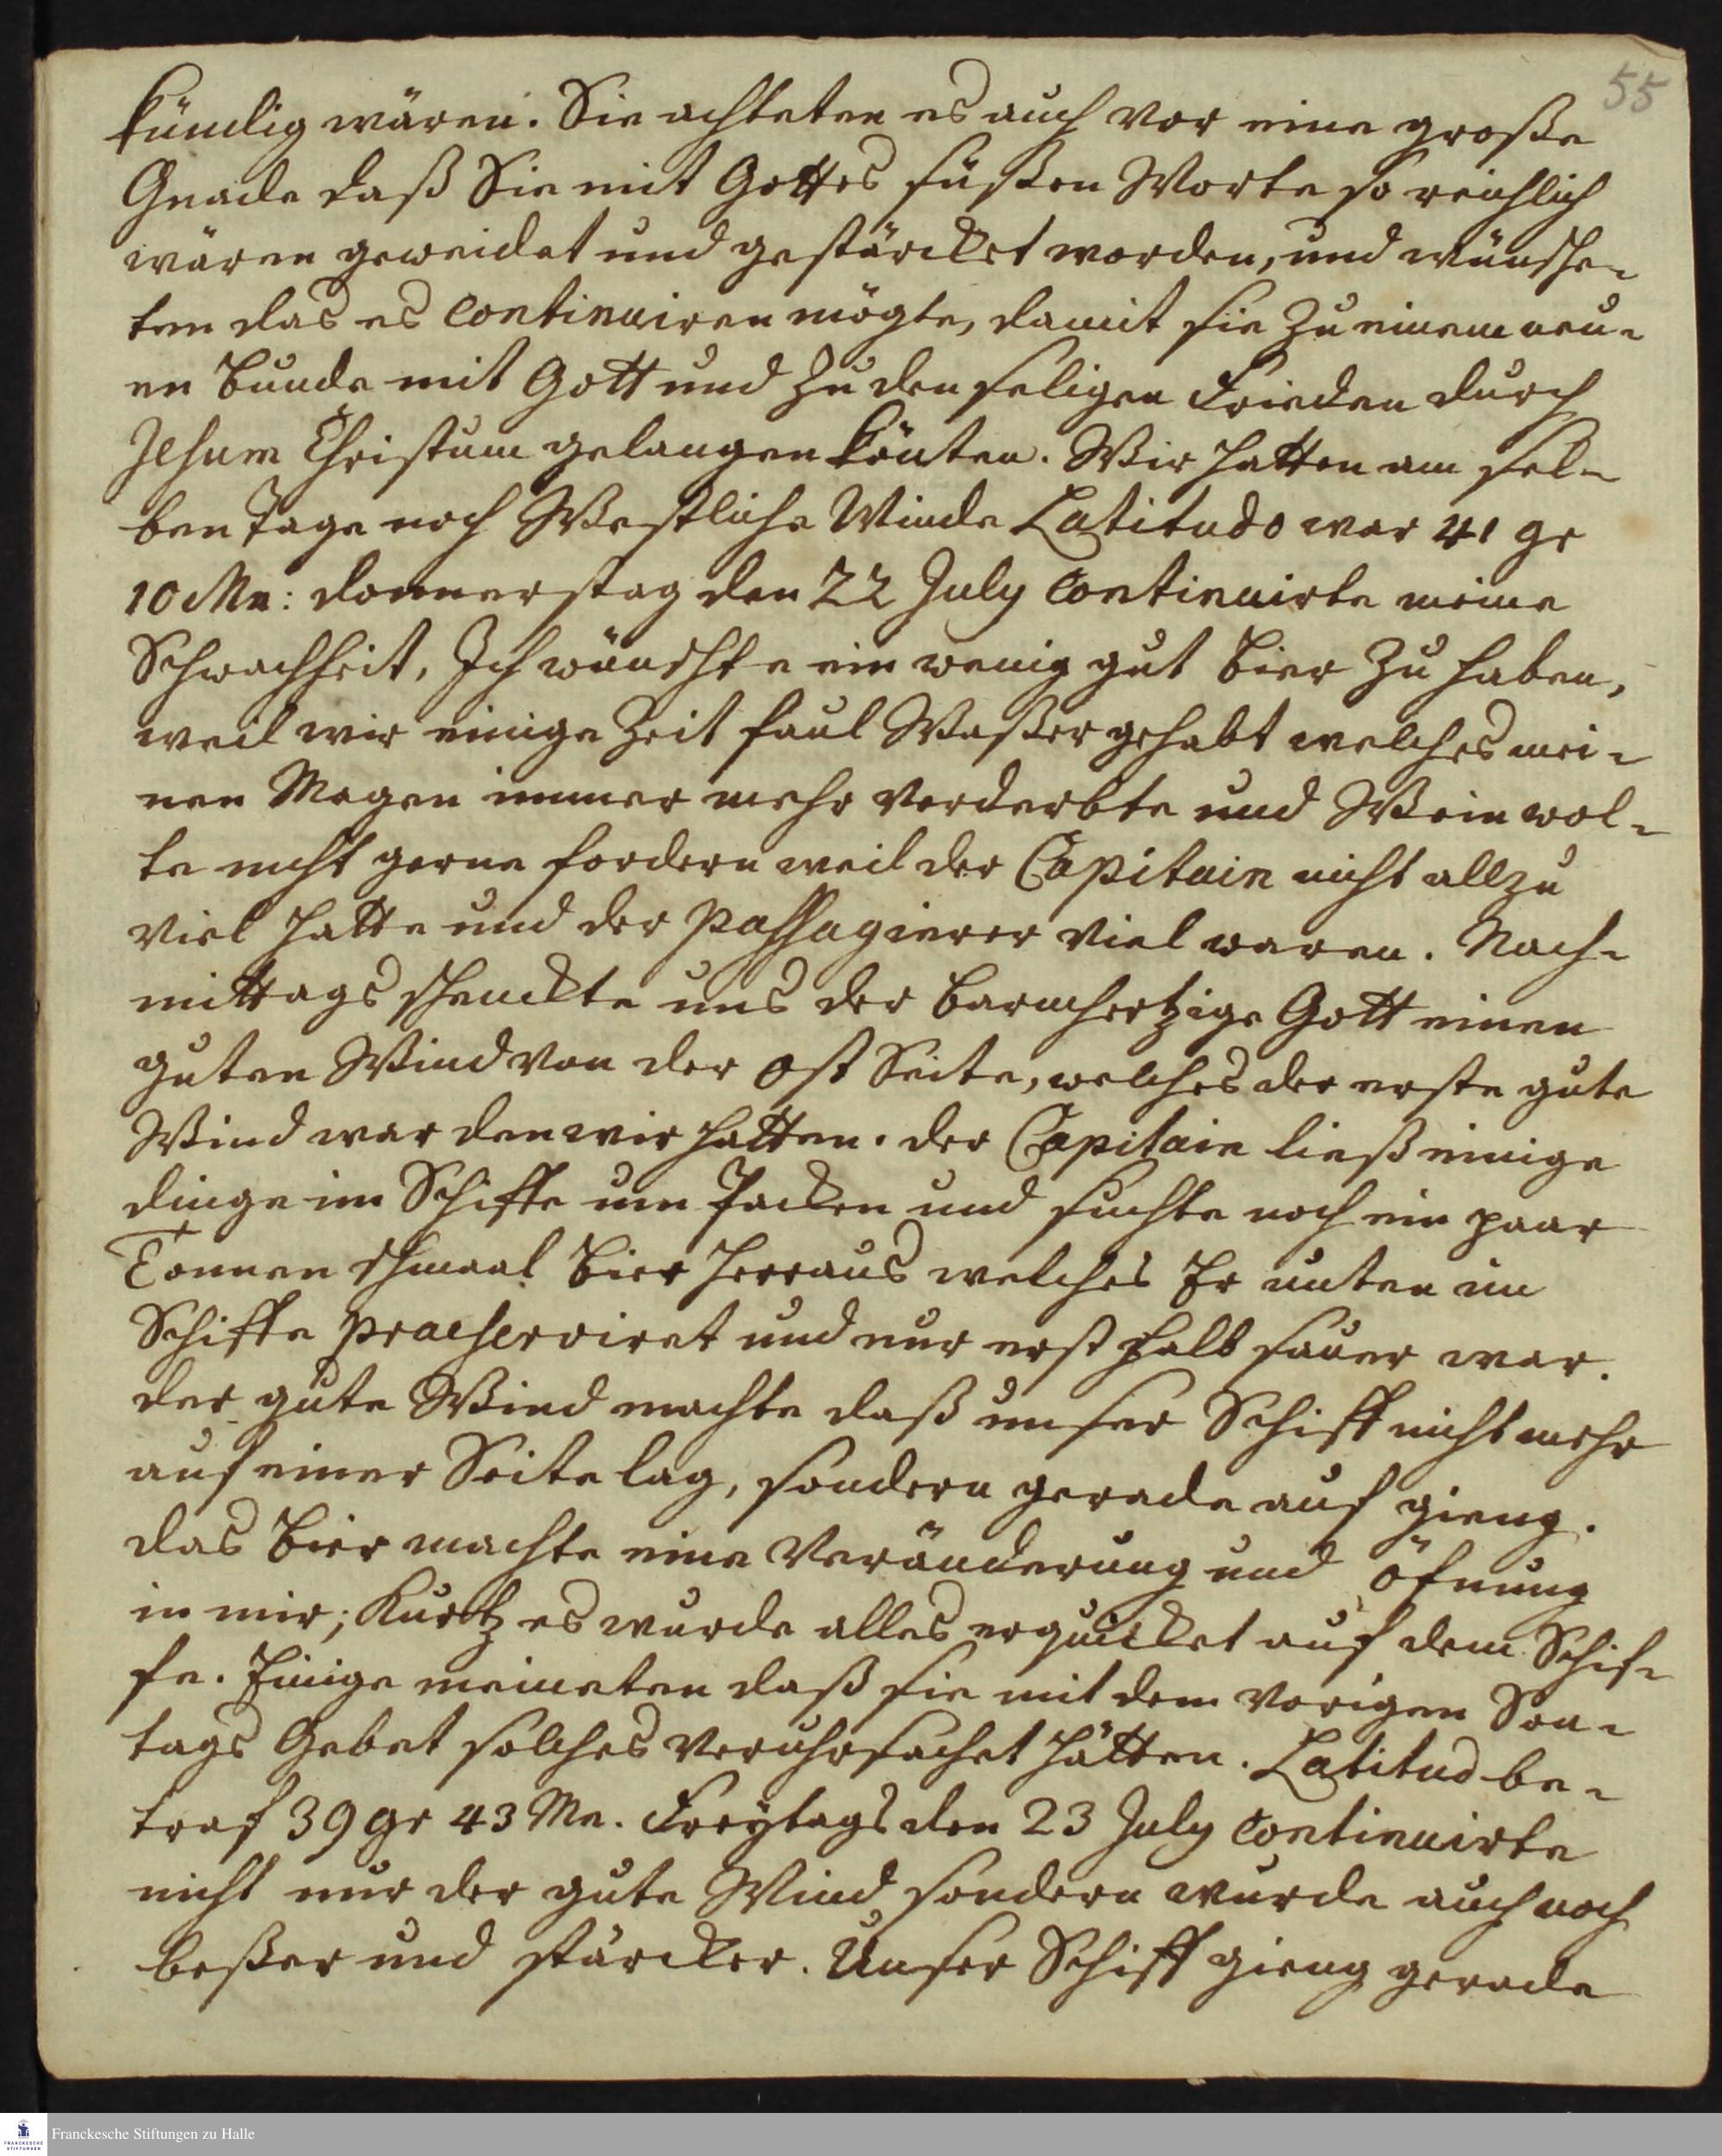 55
kündig wären. Sie achteten es auch vor eine große
Gnade daß Sie mit Gottes süßen Worte so reichlich
wären geweidet und gestärcket worden, und wünsche-
ten das es continuiren mögte, damit sie zu einem neu-
en Bunde mit Gott und zu den seligen Frieden durch
Jesum Christum gelangen könten. Wir hatten am sel-
ben Tage noch Westliche Winde Latitudo war 41 gr
10 Mn: donnerstag den 22 July continuirte meine
Schwachheit, Ich wünschte ein wenig gut Bier zu haben,
weil wir einige Zeit faul Waßer gehabt welches mei-
nen Magen immer mehr verderbte und Wein wol-
te nicht gerne fordern weil der Capitain nicht allzu
viel hatte und der Passagierer viel waren. Nach-
mittags schenckte uns der barmhertzige Gott einen
guten Wind von der Ost Seite, welches der erste gute
Wind war den wir hatten. der Capitain ließ einige
dinge im Schiffe um packen und suchte noch ein paar
Tonnen schmaal Bier herraus welches Er unten im
Schiffe praeserviret und nur erst halb sauer war.
der gute Wind machte daß unser Schiff nicht mehr
auf einer Seite lag, sondern gerade auf gieng.
das Bier machte eine Veränderung und öfnung
in mir; Kurtz es wurde alles erquicket auf dem Schif-
fe. Einige meineten daß sie mit dem vorigen Son-
tags Gebet solches veruhrsachet hätten. Latitud be-
traf 39 gr 43 Mn. Freytags den 23 July continuirte
nicht nur der gute Wind sondern wurde auch noch
beßer und stärcker. Unser Schiff gieng gerade
FRANCKESCHE
STIFTUNGEN
Franckesche Stiftungen zu Halle